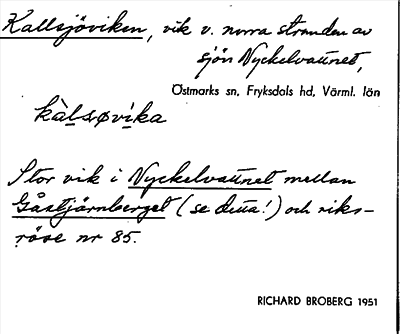 Kallsjöviken, vik v. norra stranden av
sjön Nyckelvattnet,
Östmarks sn, Fryksdals hd, Värml. län
kàlsøvika
Stor vik i Nyckelvattnet mellan
Gåstjärnberget (se detta!) och riks-
röse nr 85.
RICHARD BROBERG 1951